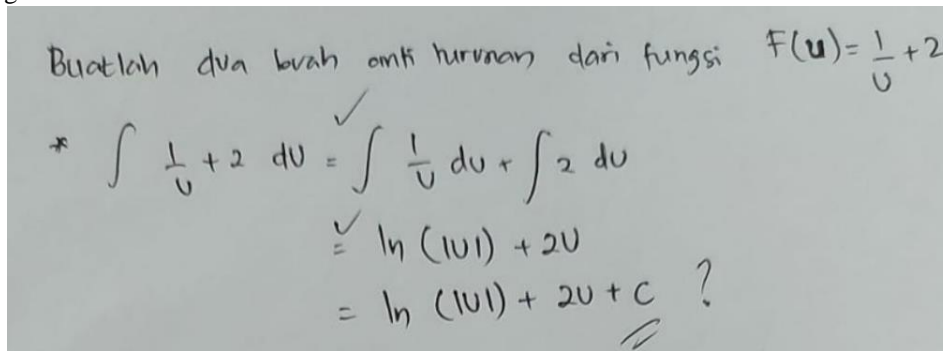 Buatlah dua buah anti turunan dari fungsi F(u) = 1/u + 2
* ∫ 1/u + 2 du = ∫ 1/u du + ∫ 2 du
= ln (|u|) + 2u
= ln (|u|) + 2u + c ?